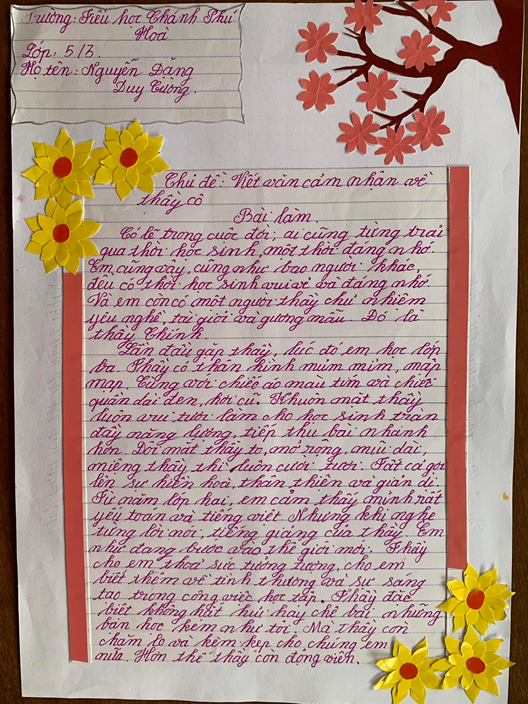 Trường: Tiểu học Chánh Phú
Hoà
Lớp: 5/3.
Họ tên: Nguyễn Đăng
Duy Cường.
Chủ đề: Viết văn cảm nhận về
thầy cô
Bài làm.
Có lẽ trong cuộc đời, ai cũng từng trải
qua thời học sinh, một thời đáng nhớ.
Em cũng vậy, cũng như bao người khác,
đều có thời học sinh vui vẻ và đáng nhớ.
Và em còn có một người thầy chủ nhiệm
yêu nghề, tài giỏi và gương mẫu. Đó là
thầy Chinh.
Lần đầu gặp thầy, lúc đó em học lớp
ba. Thầy có thân hình mũm mĩm, mập
mạp. Cùng với chiếc áo màu tím và chiếc
quần dài đen, hơi cũ. Khuôn mặt thầy
luôn vui tươi làm cho học sinh tràn
đầy năng lượng, tiếp thu bài nhanh
hơn. Đôi mắt thầy to, mở rộng, mũi dài,
miệng thầy thì luôn cười tươi. Tất cả gợi
lên sự hiền hoà, thân thiện và giản dị.
Từ năm lớp hai, em cảm thấy mình rất
yếu toán và tiếng việt. Nhưng khi nghe
từng lời nói, tiếng giảng của thầy. Em
như đang bước vào thế giới mới. Thầy
cho em thoả sức tưởng tượng, cho em
biết thêm về tình thương và sự sáng
tạo trong công việc học tập. Thầy đặc
biệt không hắt hủi hay chê bai những
bạn học kém như tôi. Mà thầy còn
chăm lo và kèm kẹp cho chúng em
nữa. Hơn thế thầy còn động viên.